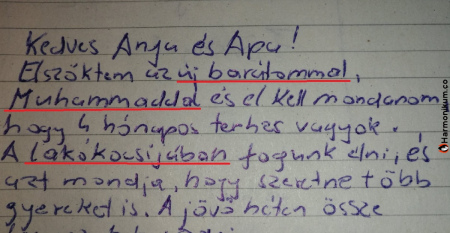 Kedves Anya és Apa!
Elszöktem az új barátommal,
Muhammaddal és el kell mondanom
hogy 4 hónapos terhes vagyok.
A lakókocsijában fogunk élni, és
azt mondja, hogy szeretne több
gyereket is. A jövő héten össze
Harmonikum.co